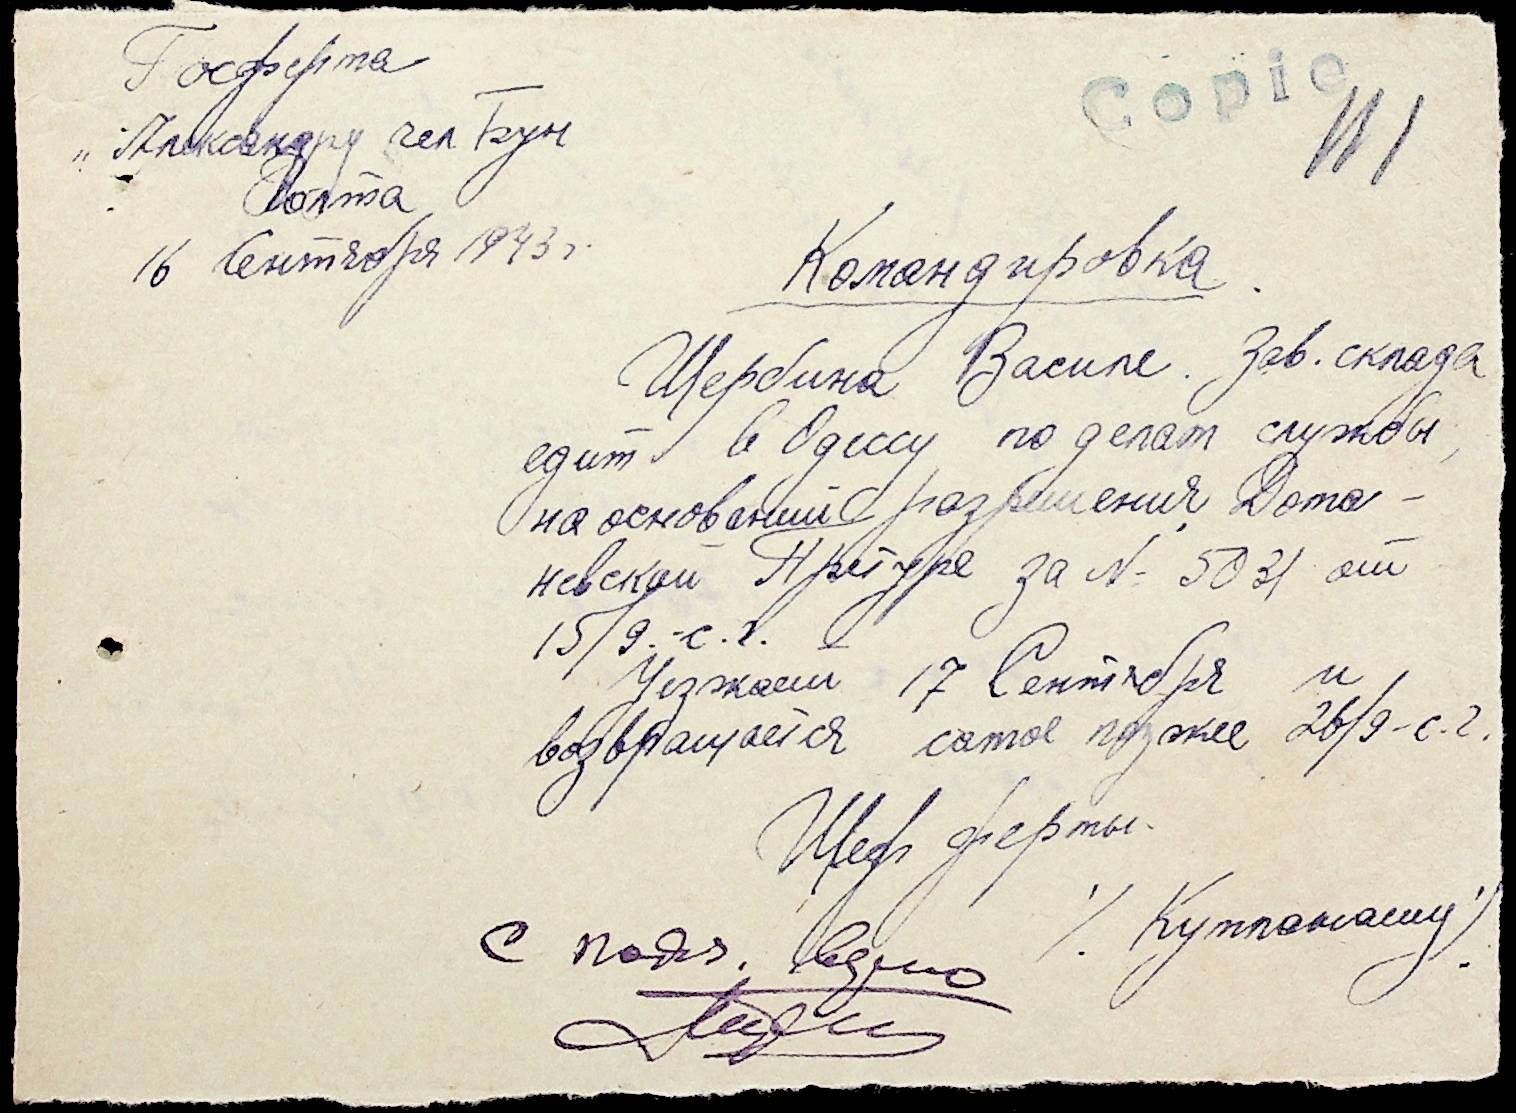 Госферма
Copie
„Александру чел Бун
Голта
16 Сентября 1943 г.
Командировка.
Щербина Василе. Зав. склада
едит в Одессу по делат службы,
на основений разрешения Дома-
невской Претуре за N- 5031 от
15/9.-с.г.
Уезжает 17 Сентября и
возвращается самое позже 26/9-с.г.
Шеф фермы.
С подл. верно